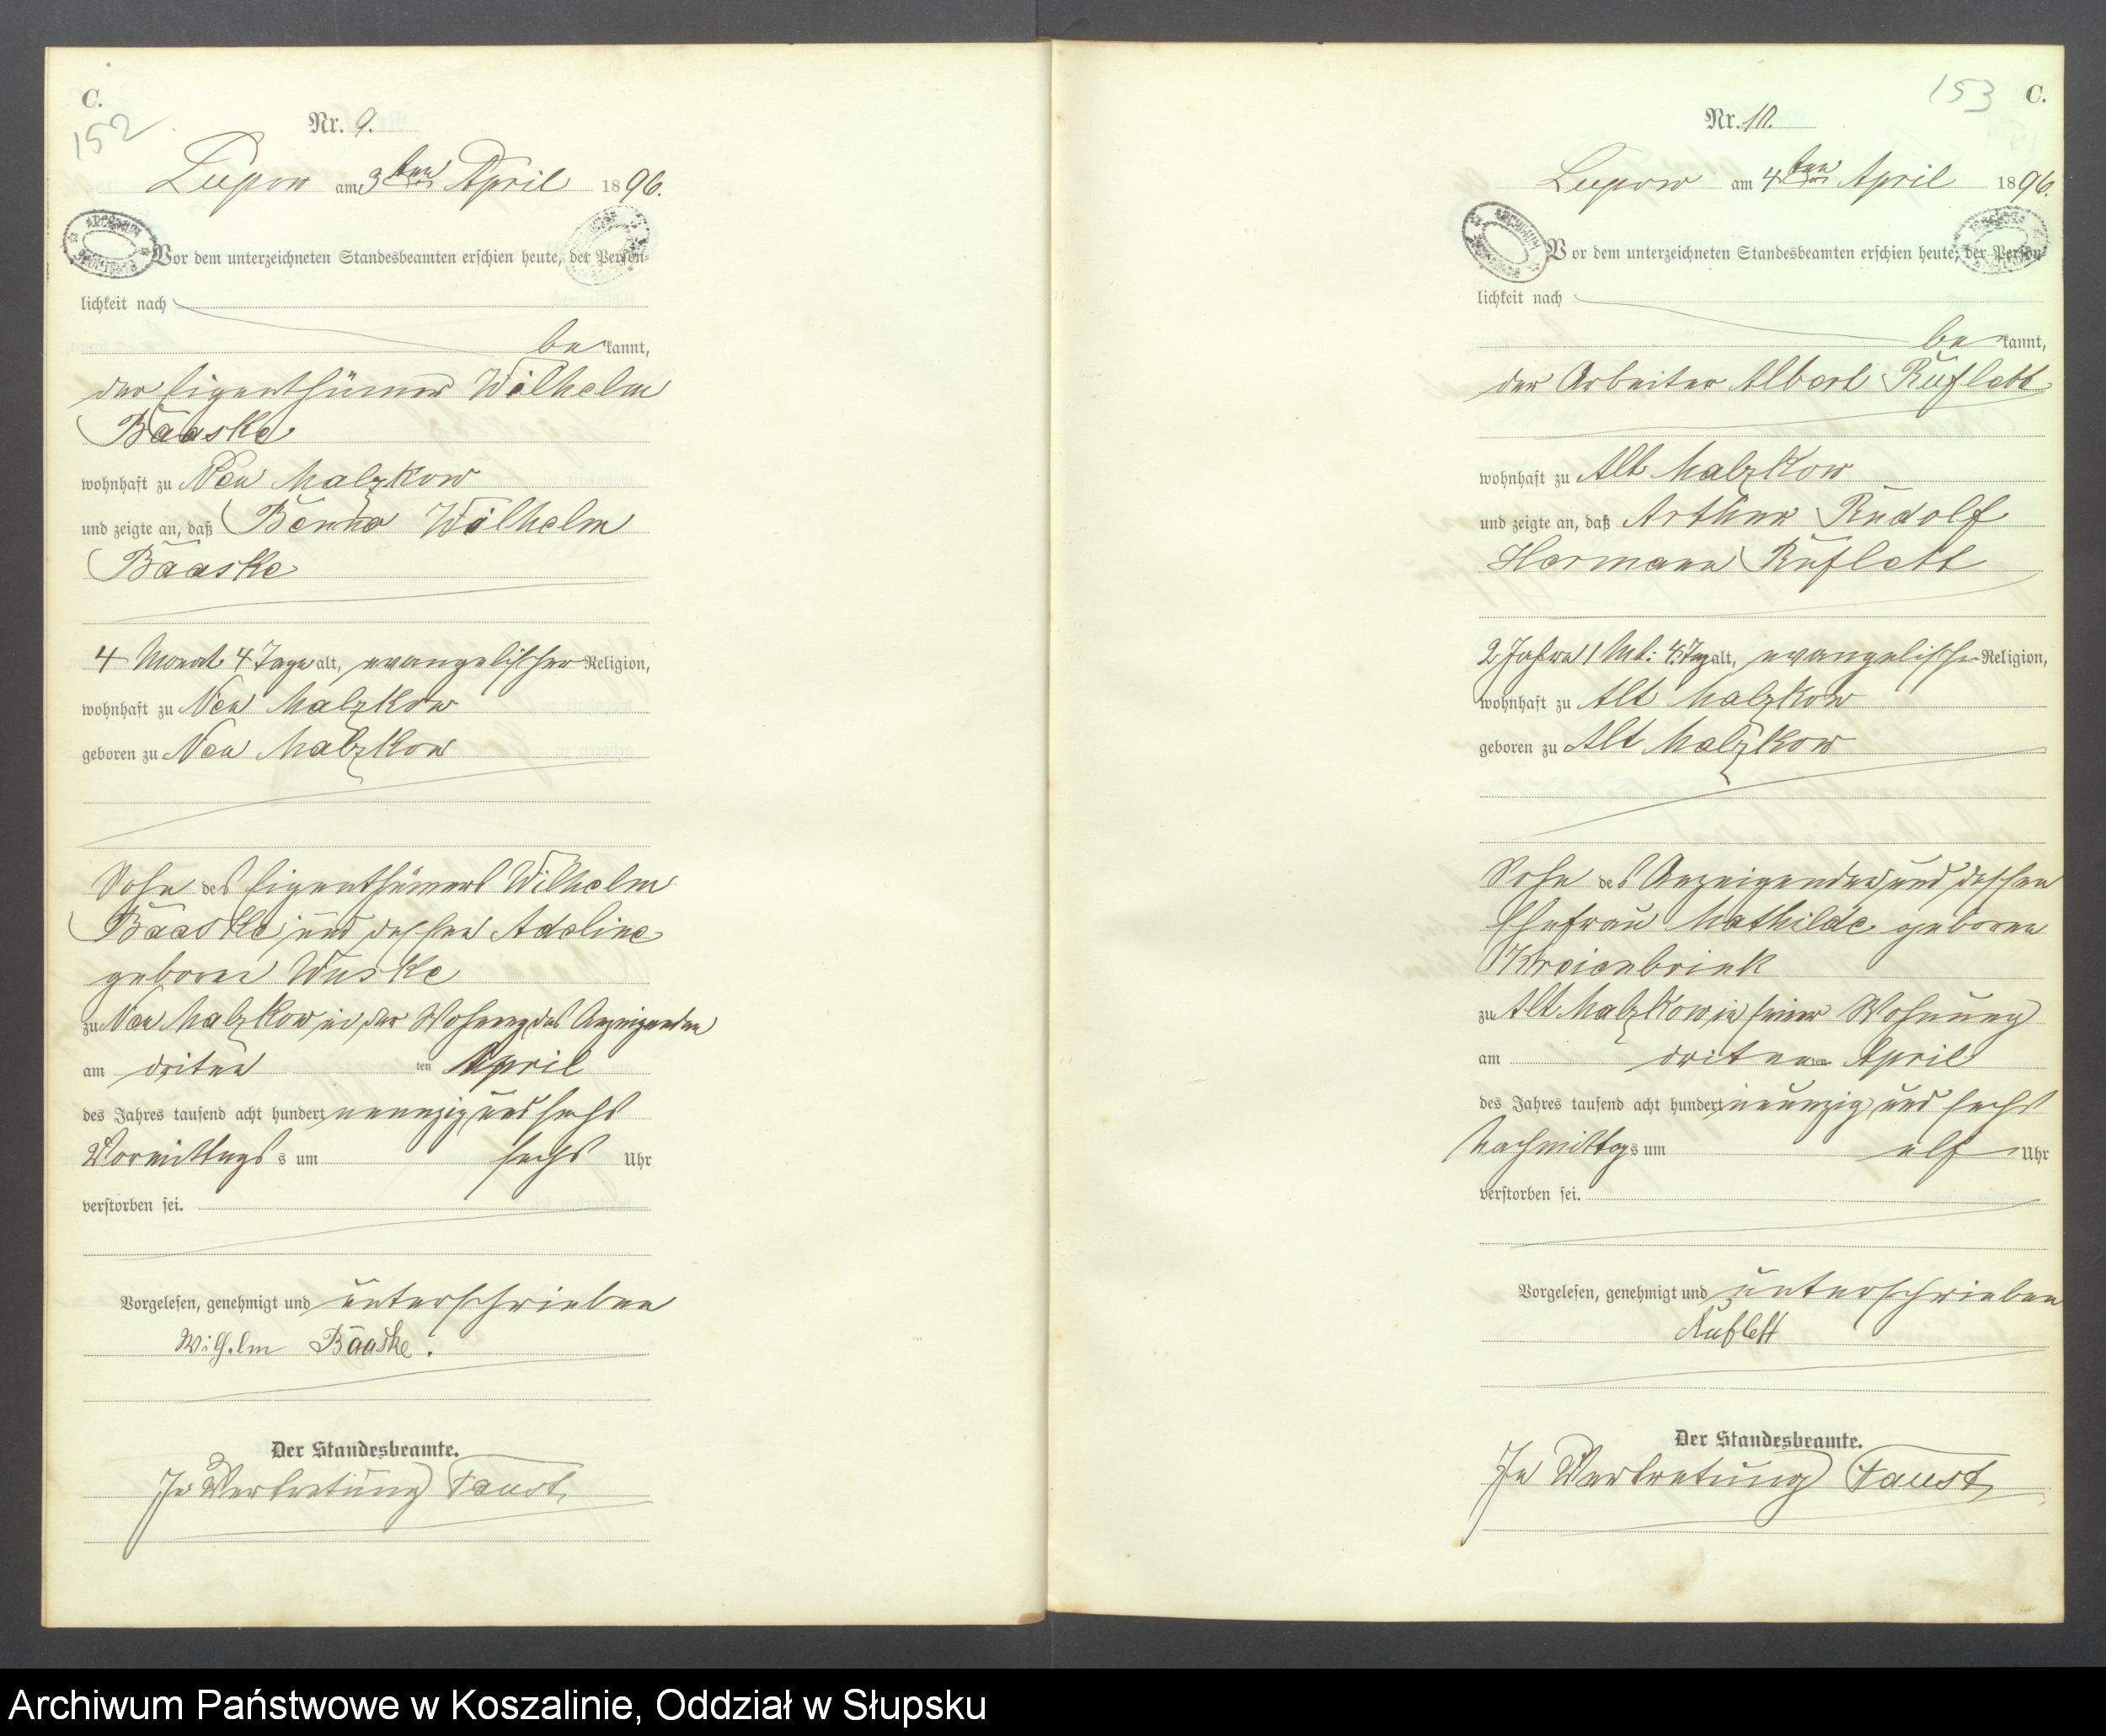 C.
152
Nr. 9.
Lupow am 3ten April 1896.
Vor dem unterzeichneten Standesbeamten erschien heute, der Persön-
lichkeit nach
bekannt,
der Eigenthümer Wilhelm
Baaske
wohnhaft zu Neu Malzkow
und zeigte an, daß Benno Wilhelm
Baaske
4 Monat 4 Tage alt, evangelischer Religion,
wohnhaft zu Neu Malzkow
geboren zu Neu Malzkow
Sohn des Eigenthümers Wilhelm
Baaske und dessen Adeline
geboren Wuske
zu Neu Malzkow in der Wohnung des Anzeigenden
am driten ten April
des Jahres tausend acht hundert neunzig und sechs
Vormittags s um sechs Uhr
verstorben sei.
Vorgelesen, genehmigt und unterschrieben
Wilhelm Baaske.
Der Standesbeamte.
In Vertretung Faust
153
C.
Nr. 10.
Lupow am 4ten April 1896.
Vor dem unterzeichneten Standesbeamten erschien heute, der Persön-
lichkeit nach
bekannt,
der Arbeiter Albert Rüflett
wohnhaft zu Alt Malzkow
und zeigte an, daß Arthur Rudolf
Hermann Ruflett
2 Jahre 1 Mt: 4 Tag alt, evangelischer Religion,
wohnhaft zu Alt Malzkow
geboren zu Alt Malzkow
Sohn des Anzeigenden und dessen
Ehefrau Mathilde geboren
Kreienbrink
zu Alt Malzkow in seiner Wohnung
am driten ten April
des Jahres tausend acht hundert neunzig und sechs
Nachmittags um elf Uhr
verstorben sei.
Vorgelesen, genehmigt und unterschrieben
Ruflett
Der Standesbeamte.
In Vertretung Faust
Archiwum Państwowe w Koszalinie, Oddział w Słupsku